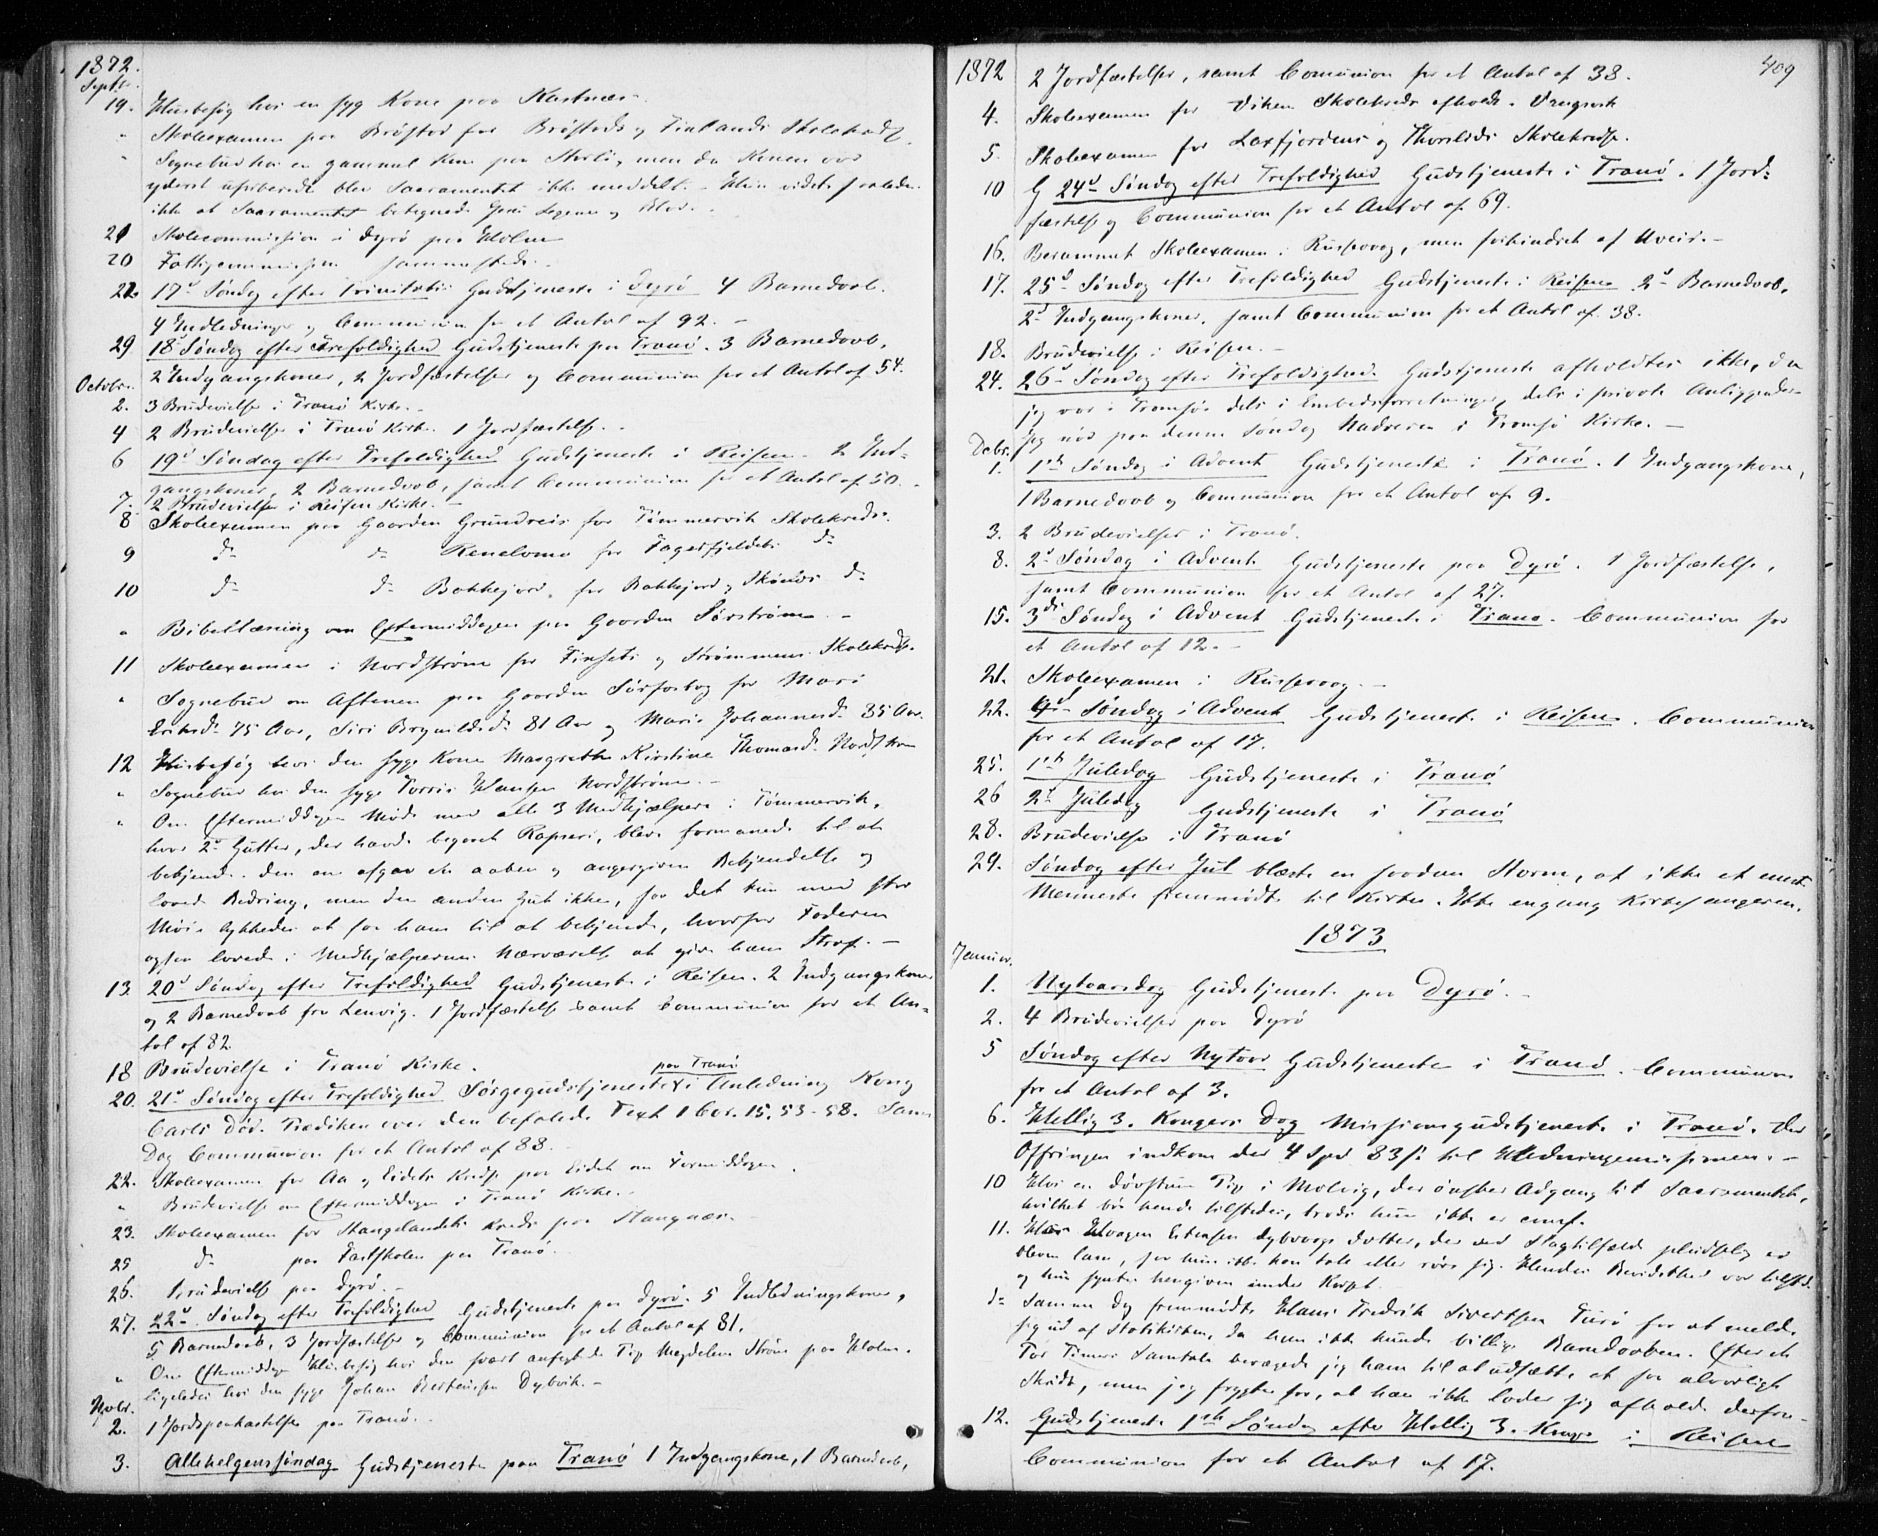 1872.
Septbr.
19. Huusbesøg hos en syg Kone paa Kastnæs.
" Skoleexamen paa Brøstad for Brøstads og Finlands Skolekreds
" Sognebud hos en gammel Kone paa men da Konen var
yderst uforberedt blev Sacramentet ikke meddelt. - Hun vidste saaledes
ikke at Sacramentet betegnede Jesu Legeme og Blod.
21 Skolecommission i Dyrø paa Holm
20 Fattigcommission sammesteds.
22. 17d Søndag efter Trinitatis Gudstjeneste i Dyrø 4 Barnedaab.
4 Indledninger og Communion for et Antal af 92. -
29 18d Søndag efter Trefoldighed Gudstjeneste paa Tranø. 3 Barnedaab,
2 Indgangskoner, 2 Jordfæstelser og Communion for et Antal af 54.
Octobr.
2. 3 Brudevielser i Tranø Kirke.
4 2 Brudevielser i Tranø Kirke. 1 Jordfæstelse.
6 19d Søndag efter Trefoldighed Gudstjeneste i Reisen. 2 Ind-
gangskoner, 2 Barnedaab, samt Communion for et Antal af 50.
7. 2 Brudevielser i Reisen Kirke.
8 Skoleexamen paa Gaarden Grundreis for Tømmervik Skolekreds.
9 do do Renelvmo for Fagerfjeldets do
10 do do Bakkejord, for Bakkejord og do
" Bibellæsning om Eftermiddagen paa Gaarden Sørstrøm. -
11 Skoleexamen i Nordstrøm for Finsæts og Strømmens Skolekreds.
" Sognebud om Aftenen paa Gaarden Sørfosbog for Mari
Eriksd. 75 Aar, Siri Brynildsd. 81 Aar og Maris Johannesd. 35 Aar.
12 Huusbesøg hos den syge Kone Margrethe Kirstine Thomasd. Nordstrøm
" Sognebud hos den syge Torris Hansen Nordstrøm. -
" Om Eftermiddagen Møde med alle 3 Medhjælpere i Tømmervik,
hvor 2de Gutter, der havde begaaet Rapseri, bleve formanede til at
bekjende. Den ene afgav en aaben og angergiven Bekjendelse og
lovede Bedring, men den anden Gut ikke, saa det kun med stor
Møie lykkedes at faa ham til at bekjende, hvorfor Faderen
ogsaa lovede i Medhjælpernes Nærværelse at give ham Straf. -
13. 20d Søndag efter Trefoldighed Gudstjeneste i Reisen. 2 Indgangskoner
og 2 Barnedaab fra Lenvig. 1 Jordfæstelse samt Communion for et An-
tal af 82.
18 Brudevielse i Tranø Kirke.
paa Tranø
20. 21d Søndag efter Trefoldighed Sørgegudstjeneste i Anledning Kong
Carls Død. Prædiken over den befalede Text 1 Cor. 15, 53-58. Samme
Dag Communion for et Antal af 88.
22. Skoleexamen for Aa og Eidets Kreds paa Eidet om Formiddagen.
" Brudevielse om Eftermiddagen i Tranø Kirke.
23. Skoleexamen for Stangelandets Kreds paa Stangnæs.
25 do paa Fastskolen paa Tranø.
26. Brudevielse paa Dyrø. -
27. 22d Søndag efter Trefoldighed Gudstjeneste paa Dyrø. 5 Indledningskoner,
5 Barnedaab, 3 Jordfæstelser og Communion for et Antal af 81.
" Om Eftermiddagen Huusbesøg hos den svært anfægtede Pige Magdelene Strøm paa Holm.
ligeledes hos den syge Johan Berteussen Dybvik. -
Novbr.
2. 1 Jordspaakastelse paa Tranø.
3. Allehelgenssøndag Gudstjeneste paa Tranø 1 Indgangskone, 1 Barnedaab,
409
1872 2 Jordfæstelser, samt Communion for et Antal af 38.
4. Skoleexamen for Vikens Skolekreds afholdt i Vangsvik
5. Skoleexamen for Laxfjordens og Skolekredse.
10 G 24d Søndag efter Trefoldighed Gudstjeneste i Tranø. 1 Jord-
fæstelse og Communion for et Antal af 69.
16. Berammet Skoleexamen i Russevaag, men forhindret af Uveir. -
17. 25d Søndag efter Trefoldighed Gudstjeneste i Reisen 2de Barnedaab,
2de Indgangskoner, samt Communion for et Antal af 38.
18. Brudevielse i Reisen. -
24. 26d Søndag efter Trefoldighed. Gudstjeneste afholdtes ikke, da
jeg var i Tromsø dels i Embedsforretninger, dels i private Anliggender
jeg nød paa denne Søndag Nadveren i Tromsø Kirke. -
Decbr.
1. 1ste Søndag i Advent Gudstjeneste i Tranø. 1 Indgangskone,
1 Barnedaab og Communion for et Antal af 9.
3. 2 Brudevielser i Tranø.
8. 2d Søndag i Advent Gudstjeneste paa Dyrø. 1 Jordfæstelse,
samt Communion for et Antal af 27.
15. 3di Søndag i Advent Gudstjeneste i Tranø. Communion for
et Antal af 12. -
21. Skoleexamen i Russevaag. -
22. 4d Søndag i Advent Gudstjeneste i Reisen. Communion
for et Antal af 17.
25. 1ste Juledag Gudstjeneste i Tranø
26 2d Juledag Gudstjeneste i Tranø
28. Brudevielse i Tranø
29. Søndag efter Jul blæste en saadan Storm, at ikke et eneste
Menneske fremmødte til Kirke. Ikke engang Kirkesangeren.
1873
Januar.
1. Nytaarsdag Gudstjeneste paa Dyrø. -
2. 4 Brudevielser paa Dyrø
5 Søndag efter Nytaar Gudstjeneste i Tranø. Communion
for et Antal af 3.
6. Hellig 3. Kongers Dag Missionsgudstjeneste i Tranø. Ved
Offringen indkom der 4 Spd 83 s. til Hedningemissionen. -
10 Hos en døvstum Pige i Molvig, der ønsker Adgang til Sacramentet,
hvilket bør hende tilstedes, trods hun ikke er conf.
11. Hos Haagen Estensen Dybvaags Datter, der ved Slagtilfælde pludselig er
bleven lam, saa hun ikke kan tale eller røre sig. Hendes Bevidsthed var tilsted.
og hun syntes hengiven under Korset.
do Samme Dag fremmødte Hans Fredrik Sivertsen Turø for at melde
sig ud af Statskirken, da han ikke kunde billige Barnedaaben. Efter et
Par Timers Samtale bevægede jeg ham til at udsætte et saa alvorligt
Skridt, men jeg frygter for, at han ikke lader sig afholde derfra.
12. Gudstjeneste 1ste Søndag efter Hellig 3. Konge i Reisen
Communion for et Antal af 17.